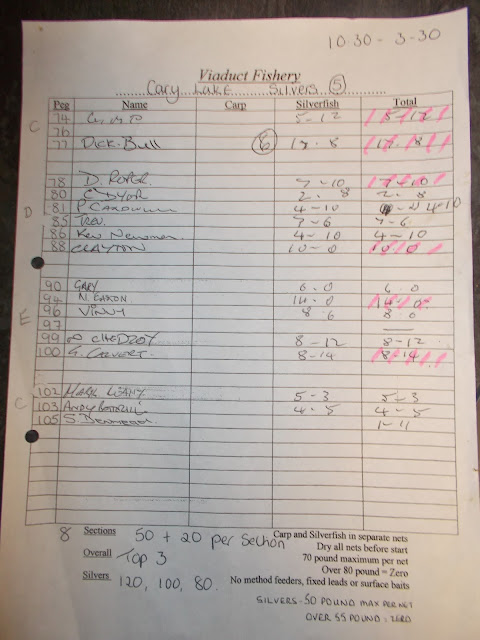 10.30 - 3-30
Viaduct Fishery
Cary Lake Silvers 5
Peg Name Carp Silverfish Total
C 74 5-12 5 12
76
77 Dick-Bull 6 17-8 17. 8
78 D. ROPER 7-10 7-10
80 C DYOR 2. 8 2. 8
D 81 4-10 4-10
85 TREV. 7-6 7-6
86 Kev Newman 4-10 4-10
88 CLAYTON 10-0 10 0
90 GARY 6.0 6.0
94 14.0 14.0
E 96 VINNY 8.6
97
99 CHEDZOY 8-12 8-12
100 G. CALVERT. 8-14 8-14
102 MARK 5-3 5-3
C 103 ANDY 4-5 4-5
105 S.
8 Sections 50 + 20 per Section Carp and Silverfish in separate nets
Dry all nets before start
Overall Top 3 70 pound maximum per net
Over 80 pound = Zero
Silvers 120, 100, 80. No method feeders, fixed leads or surface baits
SILVERS - 50 POUND MAX PER NET
OVER 55 POUND = ZERO